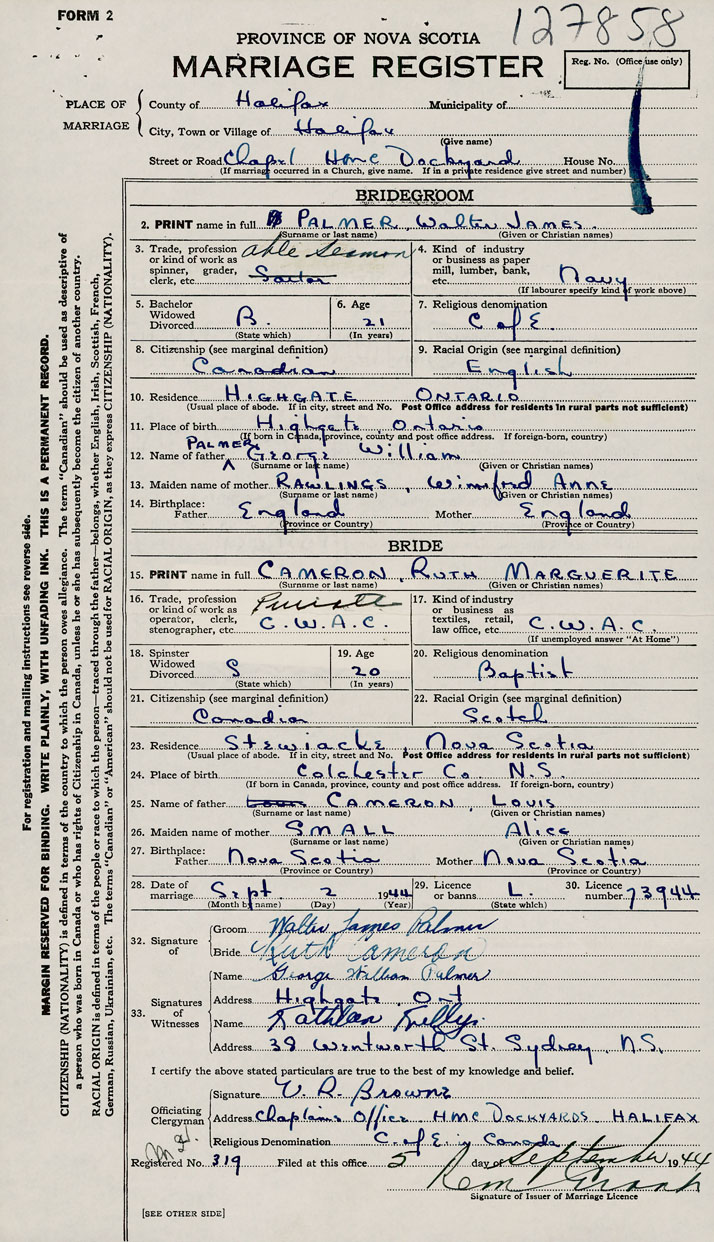 FORM 2
127858
PROVINCE OF NOVA SCOTIA
MARRIAGE REGISTER
Reg. No. (Office use only)
PLACE OF MARRIAGE
County of Halifax Municipality of
City, Town or Village of Halifax
(Give name)
Street or Road Chapel HMC Dockyard House No.
(If marriage occurred in a Church, give name. If in a private residence give street and number)
BRIDEGROOM
2. PRINT name in full PALMER, Walter JAMES.
(Surname or last name) (Given or Christian names)
3. Trade, profession or kind of work as spinner, grader, clerk, etc. Able Seaman Sailor
4. Kind of industry or business as paper mill, lumber, bank, etc. Navy
(If labourer specify kind of work above)
5. Bachelor Widowed Divorced B.
(State which)
6. Age 21
(In years)
7. Religious denomination C of E.
8. Citizenship (see marginal definition) Canadian
9. Racial Origin (see marginal definition) English
10. Residence HIGHGATE ONTARIO
(Usual place of abode. If in city, street and No. Post Office address for residents in rural parts not sufficient)
11. Place of birth Highgate, Ontario
(If born in Canada, province, county and post office address. If foreign-born, country)
12. Name of father PALMER George William
(Surname or last name) (Given or Christian names)
13. Maiden name of mother RAWLINGS, Winifred ANNE
(Surname or last name) (Given or Christian names)
14. Birthplace: Father England Mother England
(Province or Country) (Province or Country)
BRIDE
15. PRINT name in full CAMERON, RUTH MARGUERITE
(Surname or last name) (Given or Christian names)
16. Trade, profession or kind of work as operator, clerk, stenographer, etc. Private C.W.A.C.
17. Kind of industry or business as textiles, retail, law office, etc. C.W.A.C.
(If unemployed answer "At Home")
18. Spinster Widowed Divorced S
(State which)
19. Age 20
(In years)
20. Religious denomination Baptist
21. Citizenship (see marginal definition) Canadian
22. Racial Origin (see marginal definition) Scotch
23. Residence Stewiacke Nova Scotia
(Usual place of abode. If in city, street and No. Post Office address for residents in rural parts not sufficient)
24. Place of birth Colchester Co. N.S.
(If born in Canada, province, county and post office address. If foreign-born, country)
25. Name of father CAMERON, LOUIS
(Surname or last name) (Given or Christian names)
26. Maiden name of mother SMALL Alice
(Surname or last name) (Given or Christian names)
27. Birthplace: Father Nova Scotia Mother Nova Scotia
(Province or Country) (Province or Country)
28. Date of marriage Sept. 2 1944
(Month by name) (Day) (Year)
29. Licence or banns L.
(State which)
30. Licence number 73944
32. Signature of
Groom Walter James Palmer
Bride Ruth Cameron
33. Signatures of Witnesses
Name George William Palmer
Address Highgate, Ont
Name Kathleen
Address 38 Wentworth St. Sydney, N.S.
I certify the above stated particulars are true to the best of my knowledge and belief.
Officiating Clergyman
Signature V. R. Browne
Address Chaplains Office HMC DOCKYARDS, HALIFAX
Religious Denomination C. of E. in Canada
Registered No. 319 Filed at this office 5 day of September 1944
Signature of Issuer of Marriage Licence
[SEE OTHER SIDE]
For registration and mailing instructions see reverse side.
MARGIN RESERVED FOR BINDING. WRITE PLAINLY, WITH UNFADING INK. THIS IS A PERMANENT RECORD.
CITIZENSHIP (NATIONALITY) is defined in terms of the country to which the person owes allegiance. The term "Canadian" should be used as descriptive of
a person who was born in Canada or who has rights of Citizenship in Canada, unless he or she has subsequently become the citizen of another country.
RACIAL ORIGIN is defined in terms of the people or race to which the person—traced through the father—belongs, whether English, Irish, Scottish, French,
German, Russian, Ukrainian, etc. The terms "Canadian" or "American" should not be used for RACIAL ORIGIN, as they express CITIZENSHIP (NATIONALITY).